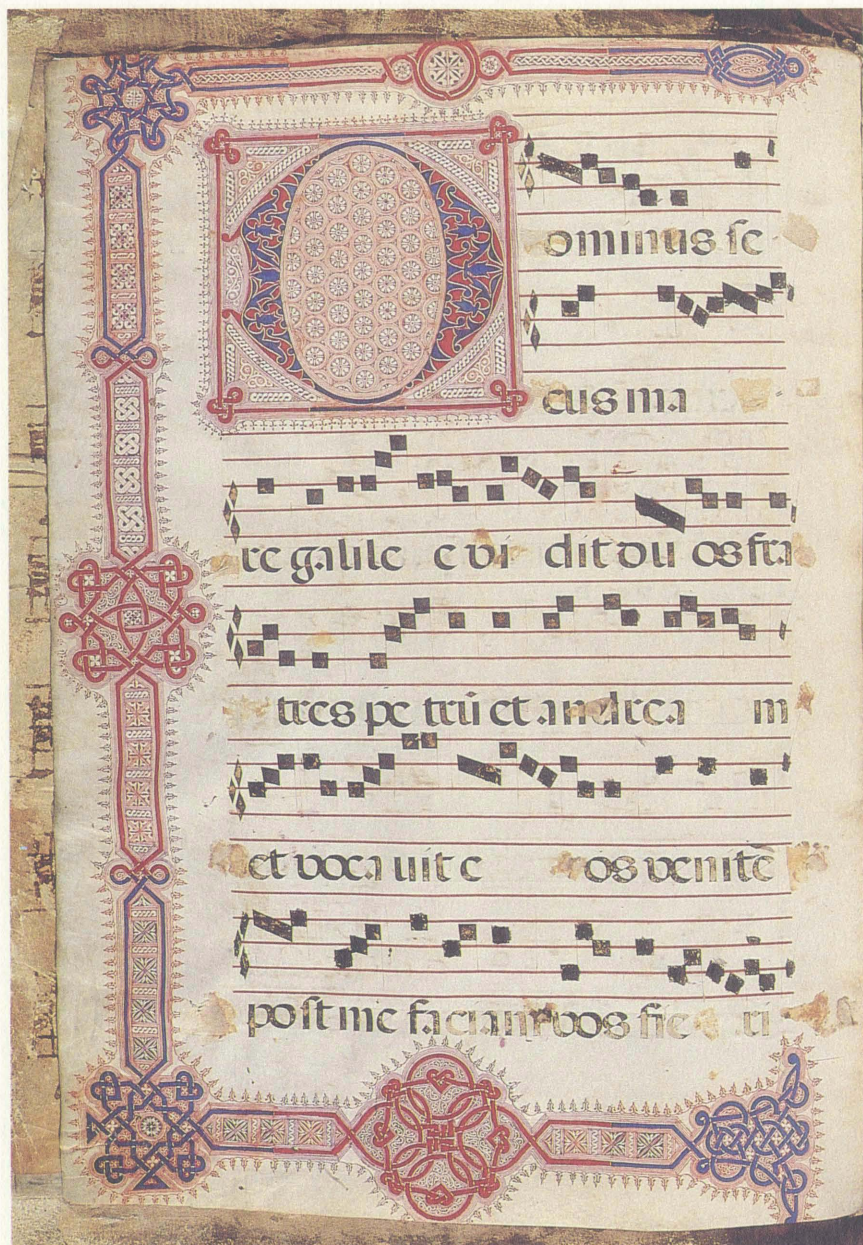 Dominus se
cus ma
re galile e vi dit du os fra
tres pe trũ et andrea m
et voca uit e os venite
post me faciam vos fie ri